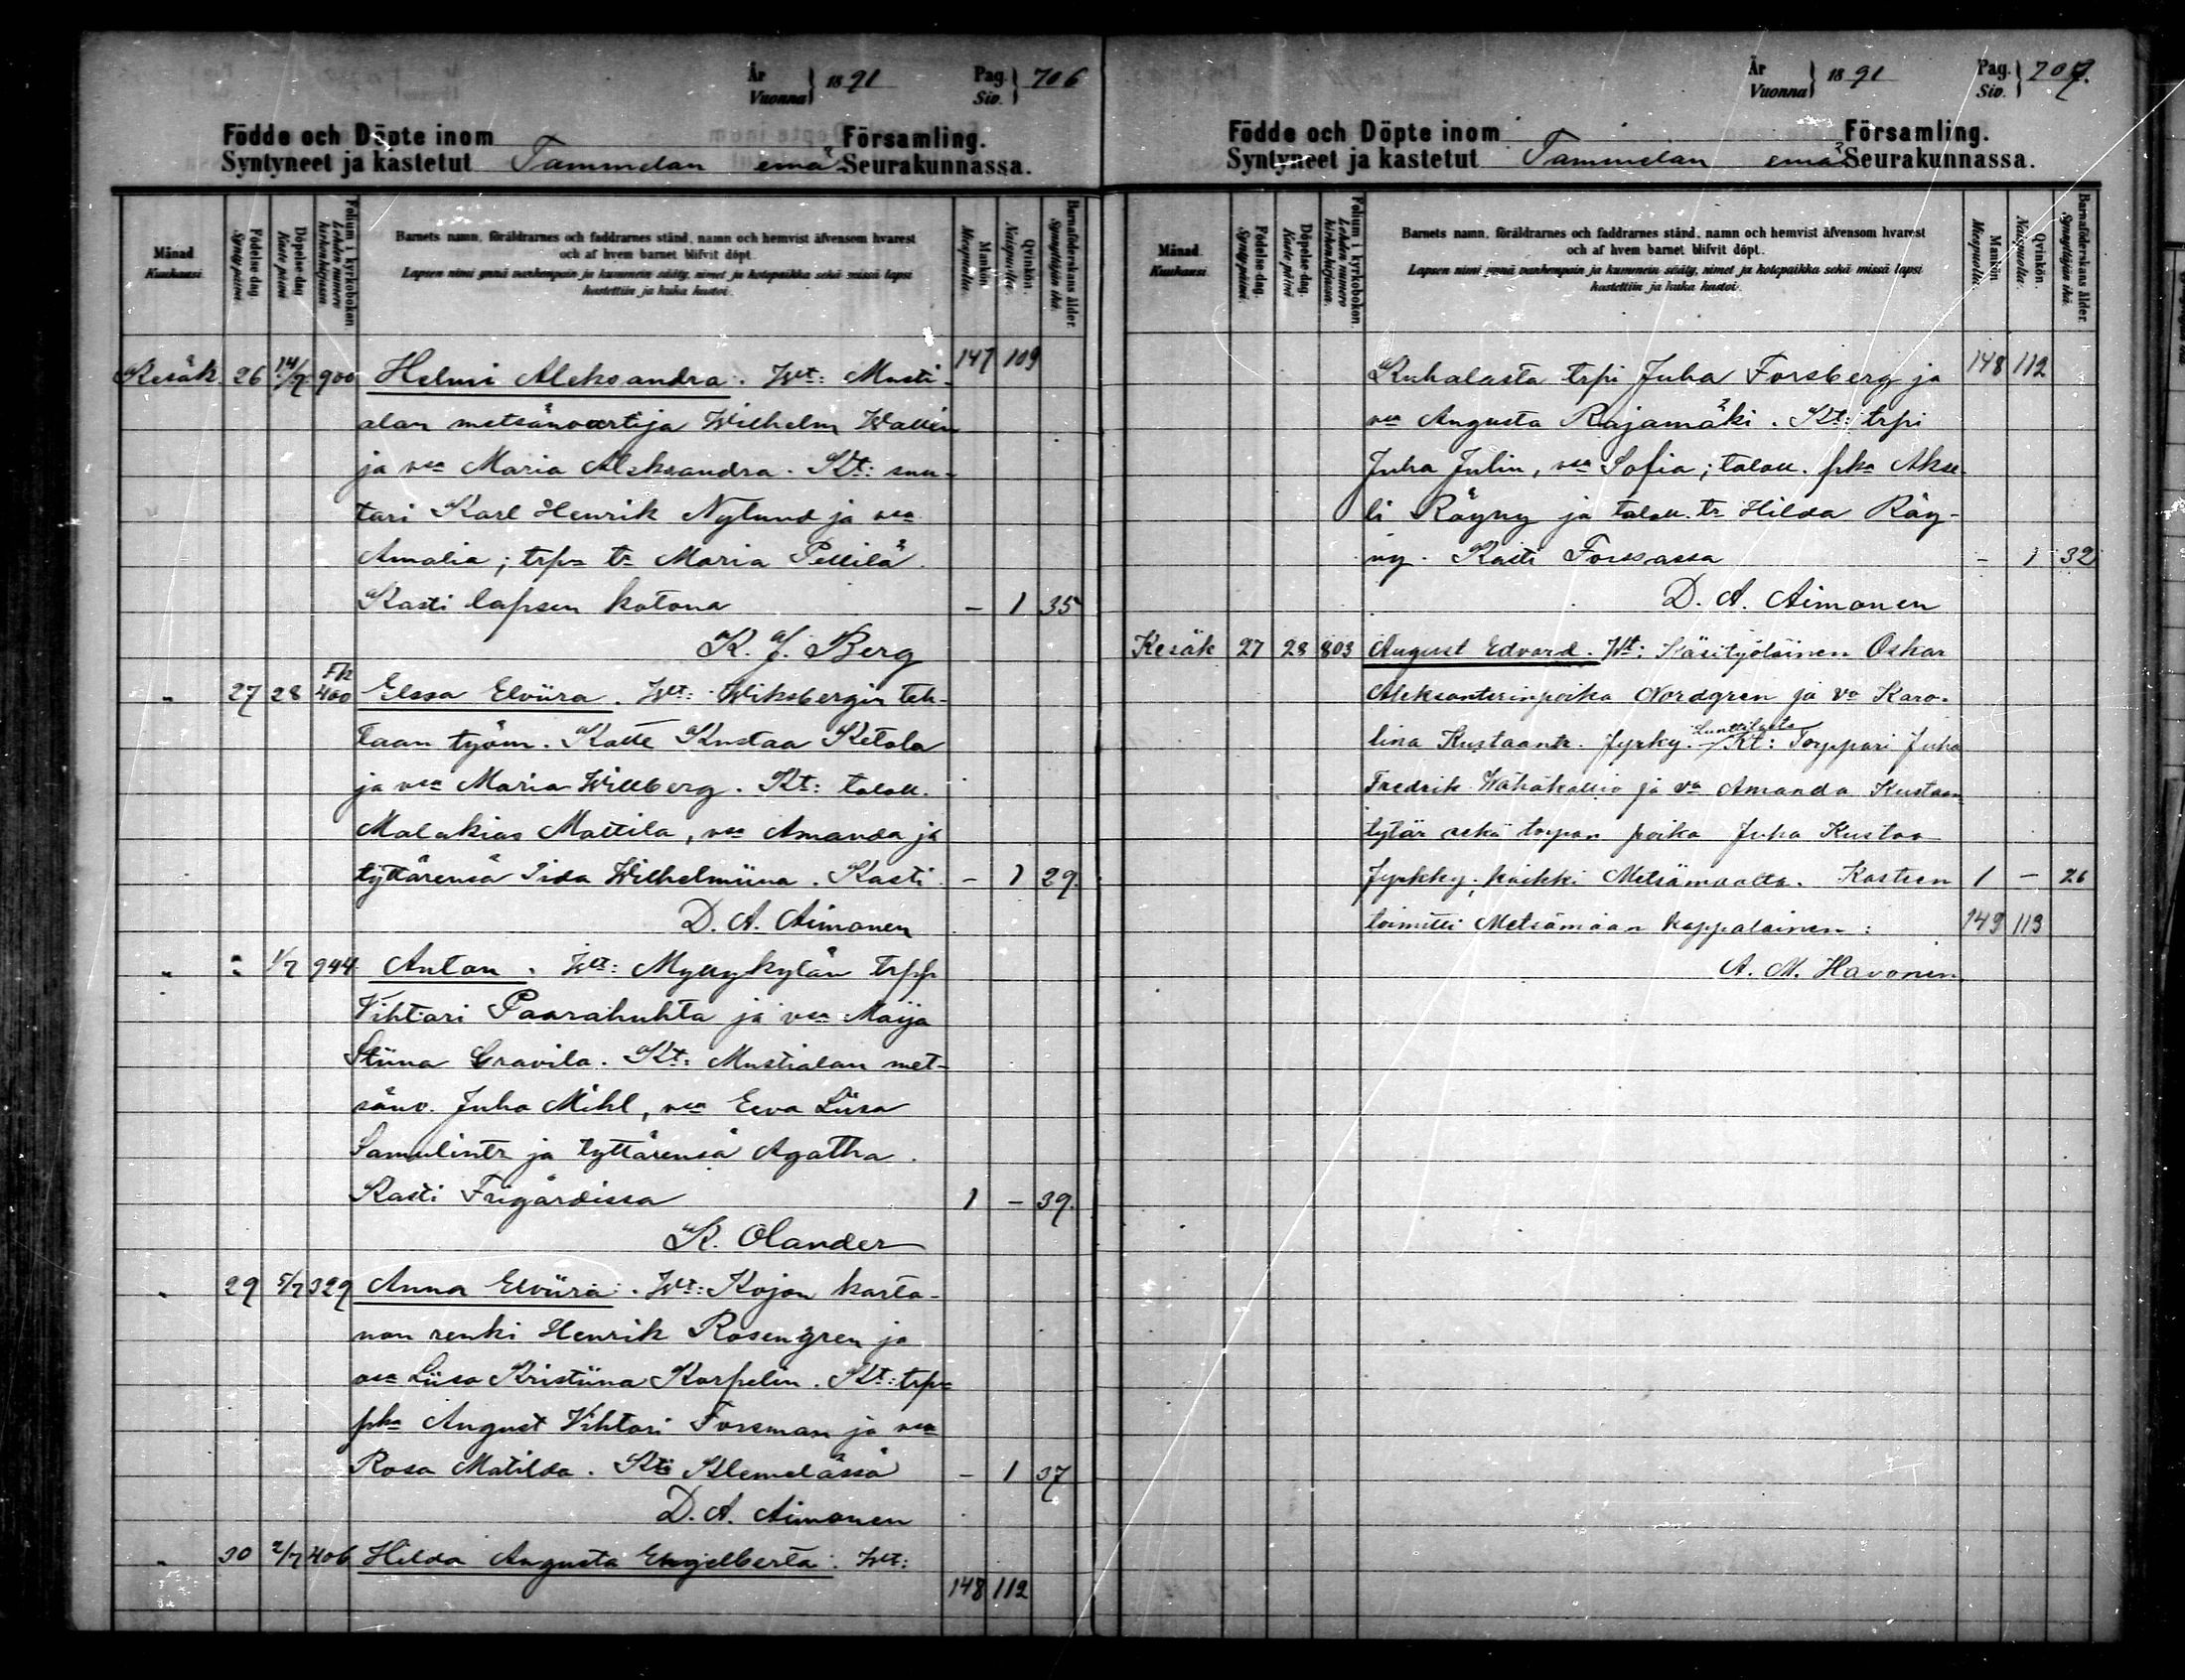 År
Vuonna } 1891
Pag.
Siv. } 706
Födde och Döpte inom Församling.
Syntyneet ja kastetut Tammelan emä Seurakunnassa.
Månad. Kuukausi.
Födelse-dag. Syntypäivä.
Döpelse-dag. Kaste päivä
Folium i kyrkoboken. Lehden numero kirkonkirjassa.
Barnets namn, föräldrarnes och faddrarnes stånd, namn och hemvist äfvensom hvarest
och af hvem barnet blifvit döpt.
Lapsen nimi ynnä vanhempain ja kummein sääty, nimet ja kotopaikka sekä missä lapsi
kastettiin ja kuka kastoi.
Mankön. Miespuolta.
Qvinkön. Naispuolta.
Barnaföderskans ålder. Synnyttäjän ikä.
147 109
Kesäk. 26 14/7 900 Helmi Aleksandra. Wt: Musti-
alan metsänvartija Wilhelm Wallin
ja vsa Maria Aleksandra. Kt: suu-
tari Karl Henrik Nylund ja vsa
Amalia; trpn tr Maria Pellilä.
Kasti lapsen kotona - 1 35
K. J. Berg
" 27 28 Fk 400 Elssa Elviira. Wt: Wiksbergin teh-
taan työm. Kalle Kustaa Ketola
ja vsa Maria Willberg. Kt: taloll.
Malakias Mattila, vsa Amanda ja
tyttärensä Iida Wilhelmiina. Kasti - 1 29.
D. A. Aimonen
" " 1/7 944 Anton. Wt: Myllykylän trpp
Vihtori Paarahuhta ja vsa Maija
Stiina Gravila. Kt: Mustialan met-
sänv. Juha Mihl, vsa Eeva Liisa
Samulintr ja tyttärensä Agatha.
Kasti Frigårdissa 1 - 39.
K. Olander
" 29 5/7 329 Anna Elviira. Wt: Kojon karta-
non renki Henrik Rosengren ja
vsa Liisa Kristiina Karpelin. Kt: trpn
pka August Vihtori Forsman ja vsa
Rosa Matilda. Kti Klemelässä - 1 37
D. A. Aimonen
" 30 2/7 406 Hilda Augusta Engelberta. Wt:
148 112
År
Vuonna } 1891
Pag.
Siv. } 707.
Födde och Döpte inom Församling.
Syntyneet ja kastetut Tammelan emä Seurakunnassa.
Månad. Kuukausi.
Födelse-dag. Syntypäivä.
Döpelse-dag. Kaste päivä
Folium i kyrkoboken. Lehden numero kirkonkirjassa.
Barnets namn, föräldrarnes och faddrarnes stånd, namn och hemvist äfvensom hvarest
och af hvem barnet blifvit döpt.
Lapsen nimi ynnä vanhempain ja kummein sääty, nimet ja kotopaikka sekä missä lapsi
kastettiin ja kuka kastoi.
Mankön. Miespuolta.
Qvinkön. Naispuolta.
Barnaföderskans ålder. Synnyttäjän ikä.
Kuhalasta trpi Juha Forsberg ja 148 112
vsa Augusta Rajamäki. Kt: trpi
Juha Julin, vsa Sofia; taloll. pka Akse-
li Räyny ja taloll. tr Hilda Räy-
ny. Kasti Forssassa - 1 32
D. A. Aimonen
Kesäk 27 28 803 August Edvard. Wt: Käsityöläinen Oskar
Aleksanterinpoika Nordgren ja va Karo-
lina Kustaantr. Jyrky. Lunttilasta Kt: Torppari Juha
Fredrik Wähäkallio ja va Amanda Kustaan
tytär sekä torpan poika Juha Kustaa
Jyrkky, kaikki Metsämaalta. Kasteen 1 - 26
toimitti Metsämaan kappalainen: 149 113
A. M. Havonen